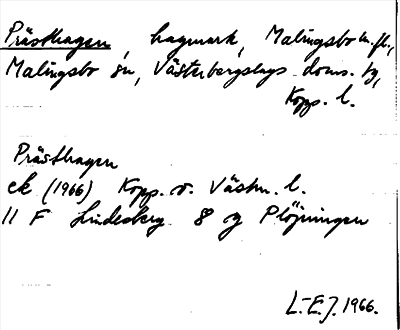 Prästhagen, hagmark, Malingsbo m.fl.,
Malingsbo sn, Västerbergslags doms. tg,
Kopp. l.
Prästhagen
ek (1966) Kopp. o. Västm. l.
11 F Lindesberg 8 g Plöjningen
L-E.J. 1966.